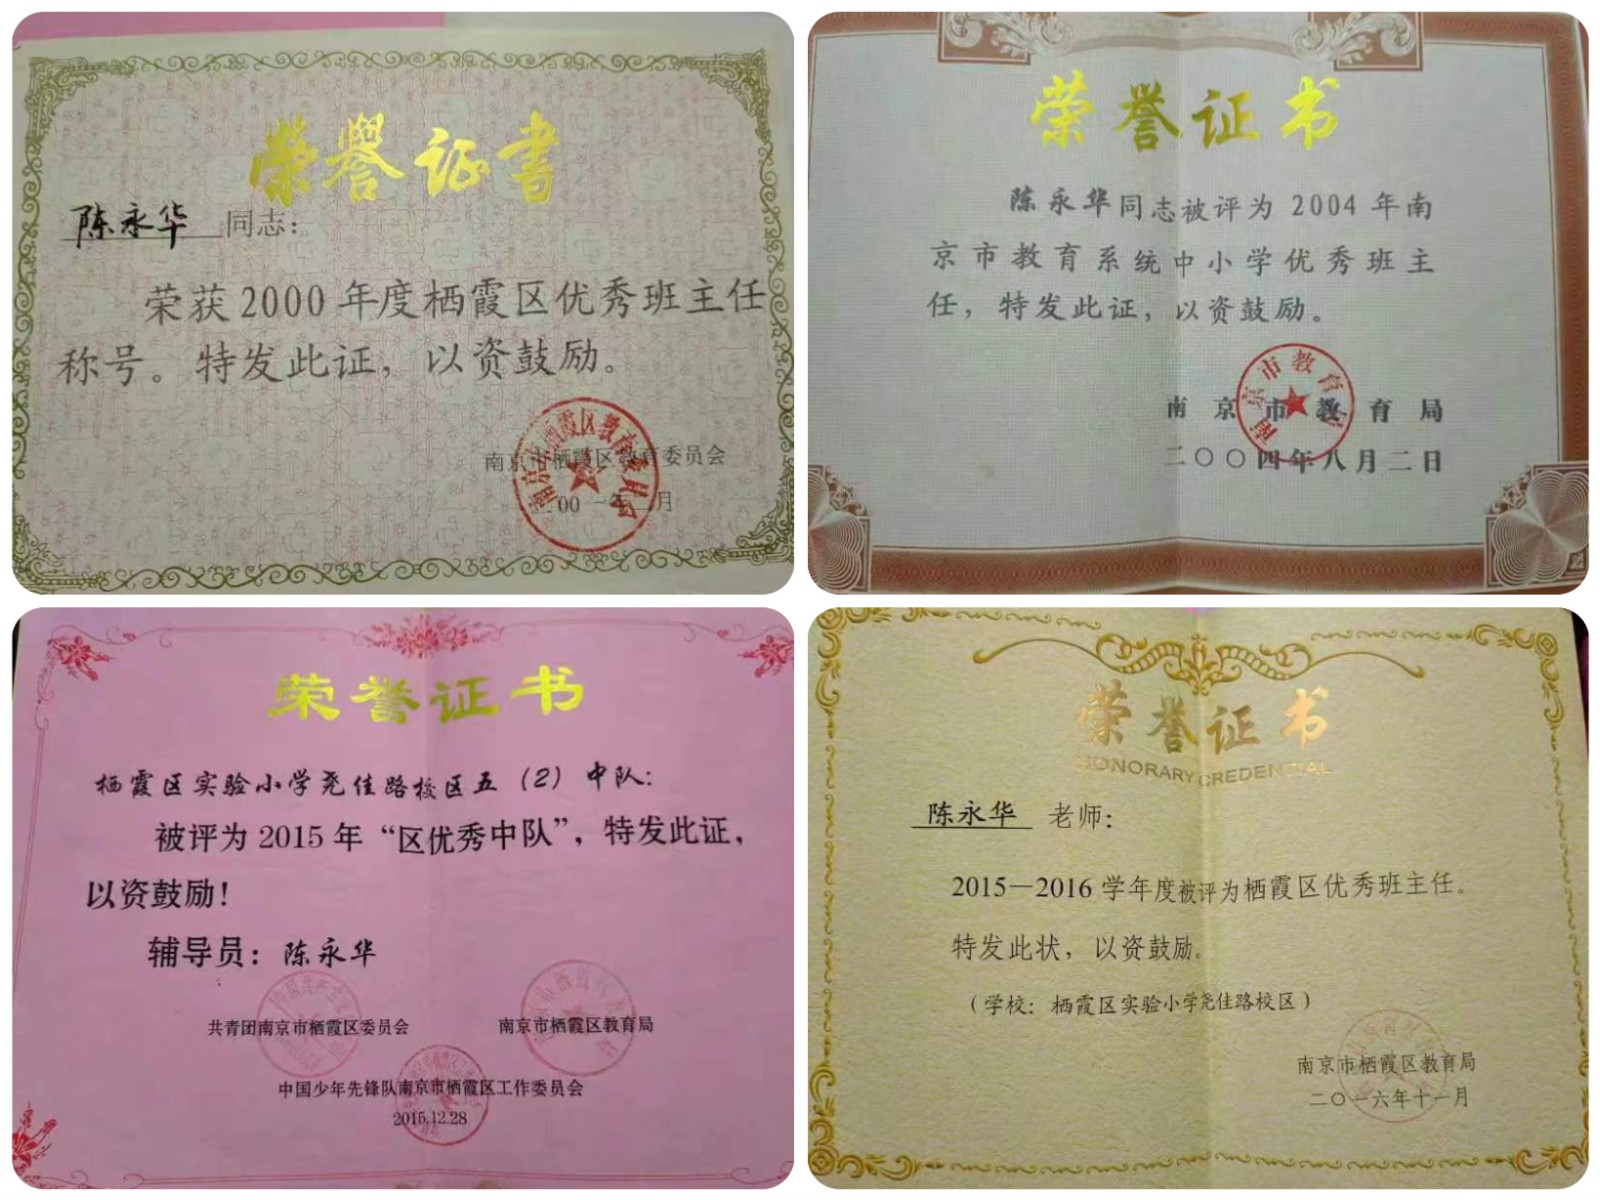 荣誉证书
陈永华 同志：
荣获2000年度栖霞区优秀班主任
称号。特发此证，以资鼓励。
南京市栖霞区教育委员会
荣誉证书
陈永华同志被评为 2004 年南
京市教育系统中小学优秀班主
任，特发此证，以资鼓励。
南京市教育局
二〇〇四年八月二日
荣誉证书
栖霞区实验小学尧佳路校区五（2）中队：
被评为 2015 年“区优秀中队”，特发此证，
以资鼓励！
辅导员：陈永华
共青团南京市栖霞区委员会 南京市栖霞区教育局
中国少年先锋队南京市栖霞区工作委员会
2015.12.28
荣誉证书
HONORARY CREDENTIAL
陈永华 老师：
2015—2016 学年度被评为栖霞区优秀班主任。
特发此状，以资鼓励。
（学校：栖霞区实验小学尧佳路校区）
南京市栖霞区教育局
二〇一六年十一月